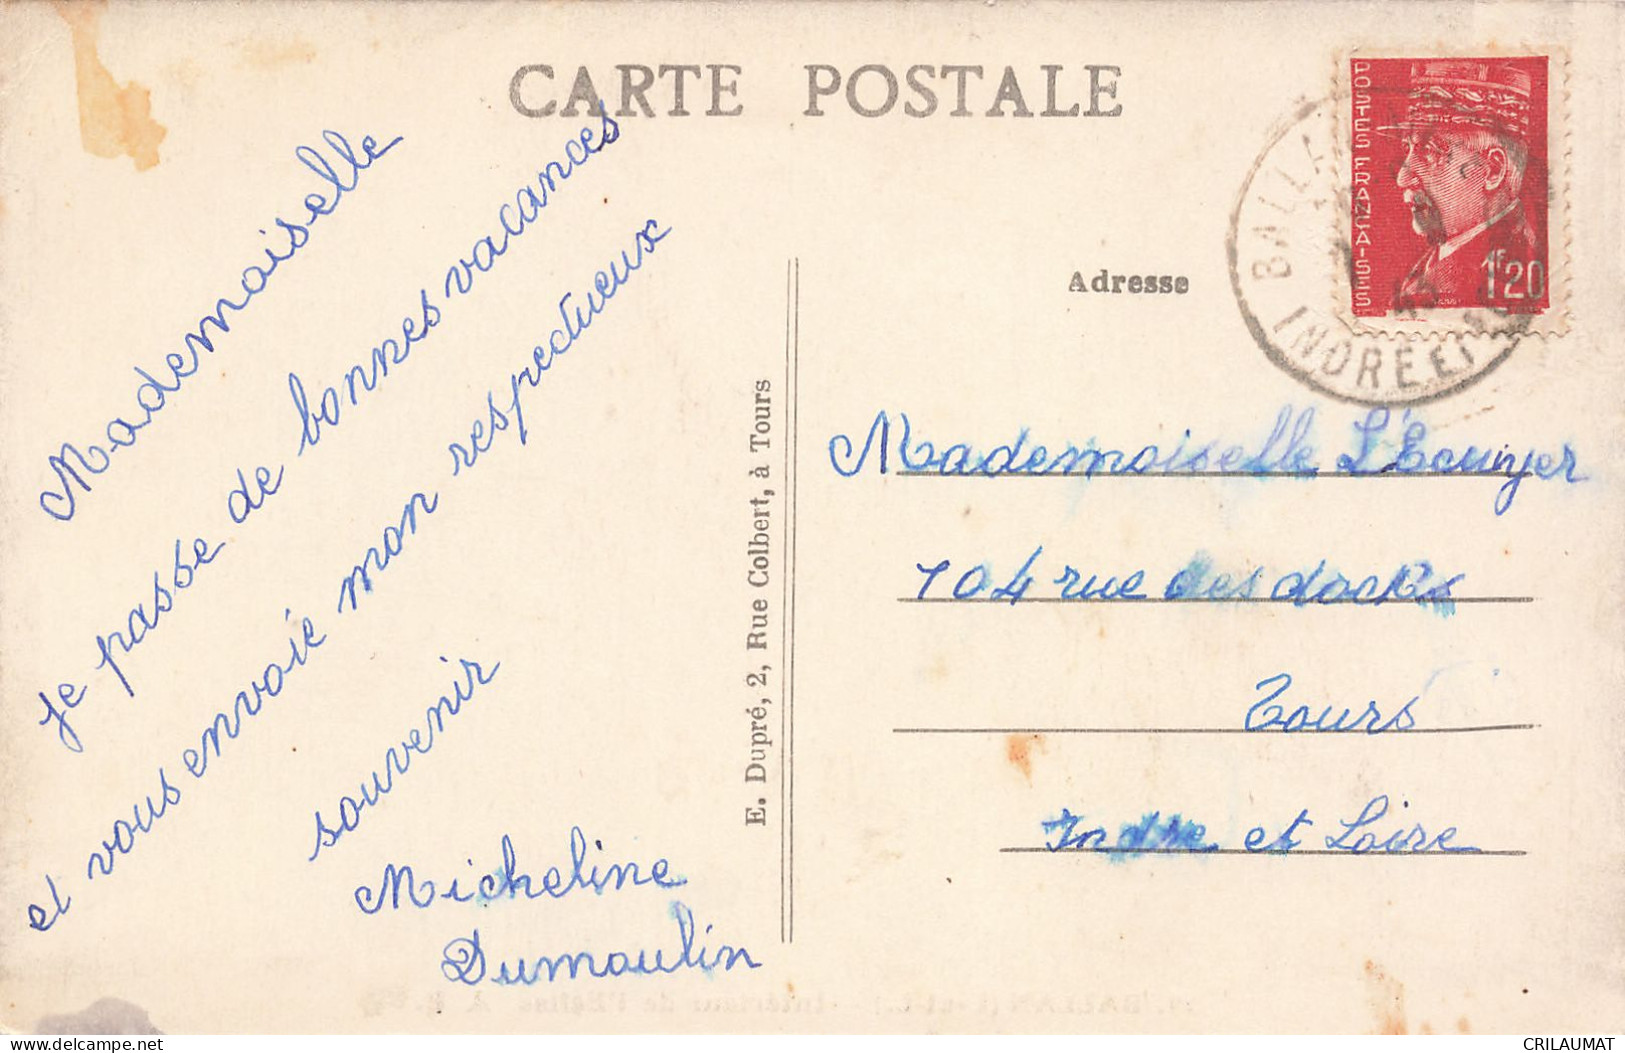 CARTE POSTALE
Mademoiselle
je passe de bonnes vacances
et vous envoie mon respectueux
souvenir
Micheline
Dumoulin
E. Dupré, 2, Rue Colbert, à Tours
POSTES FRANÇAISES
1F20
BALLAN
INDRE ET
43
Adresse
Mademoiselle L'Ecuyer
104 rue des docks
Tours
Indre et Loire
BALLAN (I.-et-L.) - Intérieur de l'Eglise A. R.
www.delcampe.net
CRILAUMAT